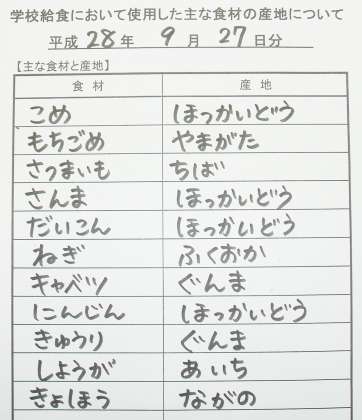 学校給食において使用した主な食材の産地について
平成28年 9月 27日分
【主な食材と産地】
食材 産地
こめ ほっかいどう
もちごめ やまがた
さつまいも ちば
さんま ほっかいどう
だいこん ほっかいどう
ねぎ ふくおか
キャベツ ぐんま
にんじん ほっかいどう
きゅうり ぐんま
しょうが あいち
きょほう ながの